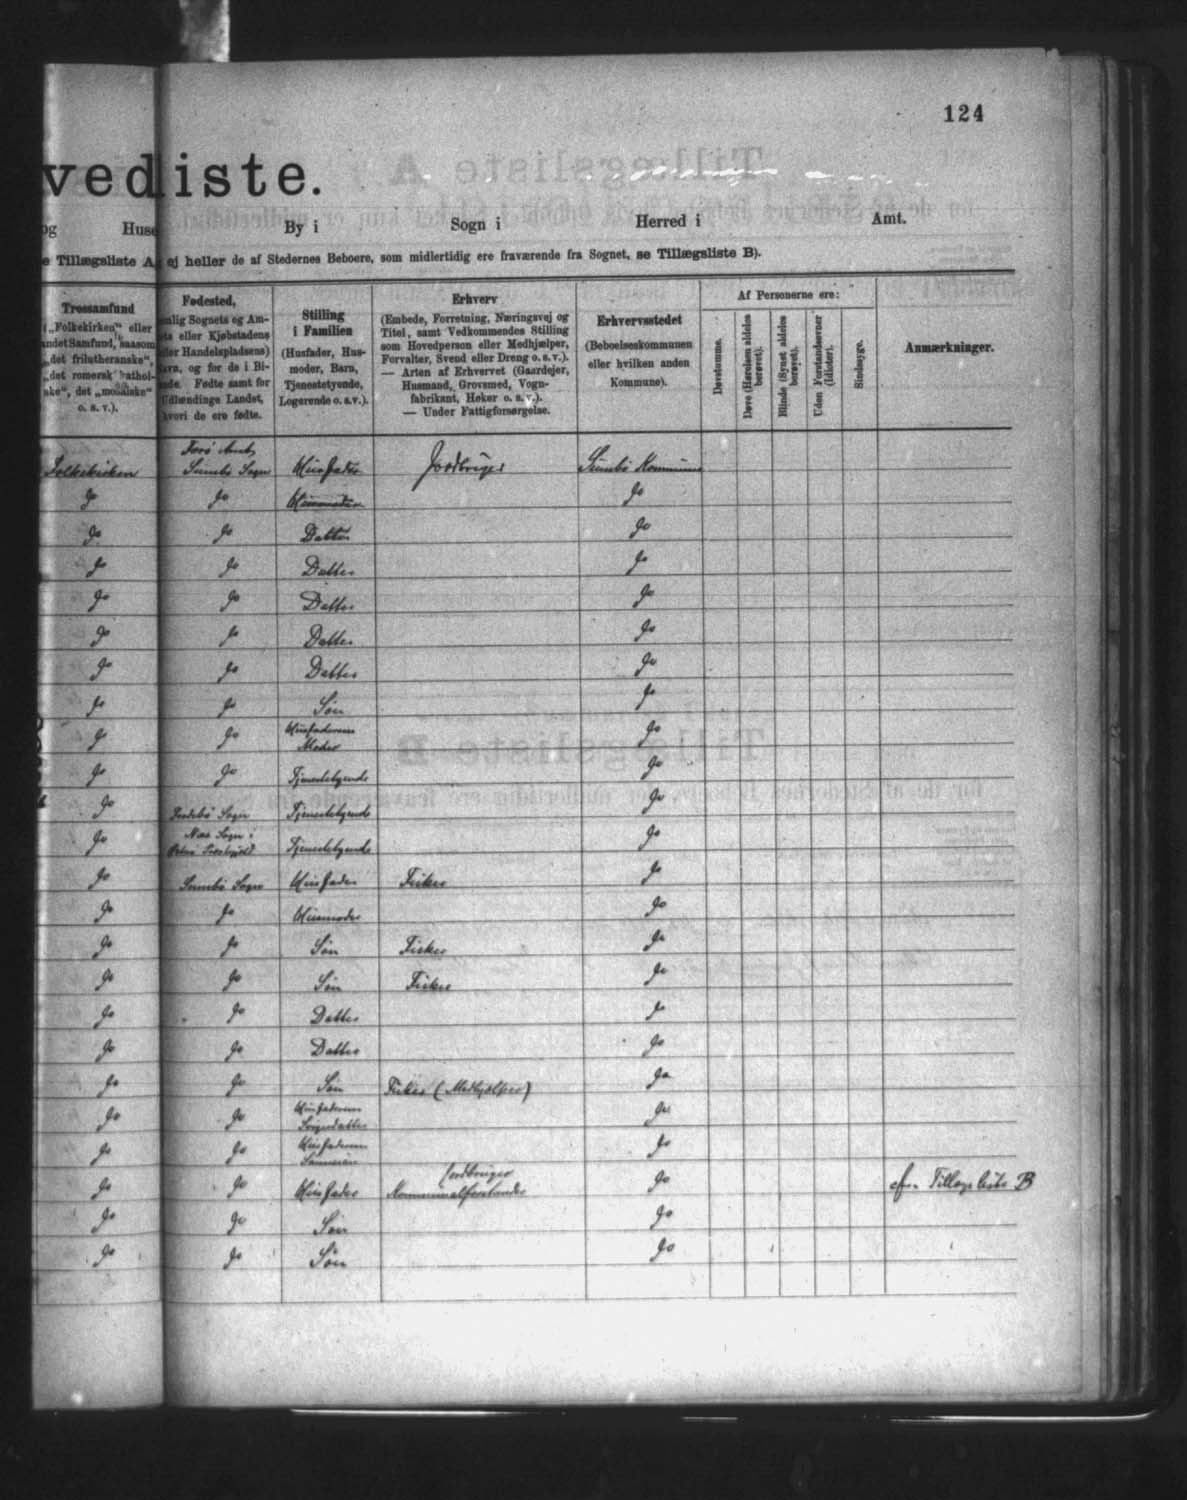 124
vediste.
og Huse By i Sogn i Herred i Amt.
e Tillægsliste A, ej heller de af Stedernes Beboere, som midlertidig ere fraværende fra Sognet, se Tillægsliste B).
Trossamfund
(„Folkekirken“ eller
andet Samfund, saasom
„det frilutheranske“,
„det romersk kathol-
ske“, det „mosaiske“
o. s. v.).
Fødested,
nlig Sognets og Am-
ts eller Kjøbstadens
ller Handelspladsens)
avn, og for de i Bi-
nde Fødte samt for
Udlændinge Landet,
hvori de ere fødte.
Stilling
i Familien
(Husfader, Hus-
moder, Barn,
Tjenestetyende,
Logerende o. s. v.).
Erhverv
(Embede, Forretning, Næringsvej og
Titel, samt Vedkommendes Stilling
som Hovedperson eller Medhjælper,
Forvalter, Svend eller Dreng o. s. v.).
— Arten af Erhvervet (Gaardejer,
Husmand, Grovsmed, Vogn-
fabrikant, Høker o. s. v.).
— Under Fattigforsørgelse.
Erhvervsstedet
(Beboelseskommunen
eller hvilken anden
Kommune).
Af Personerne ere:
Døvstumme.
Døve (Hørelsen aldeles
berøvet).
Blinde (Synet aldeles
berøvet).
Uden Forstandsevner
(Idioter).
Sindssyge.
Anmærkninger.
Færø Amt,
Folkekirken Sumbø Sogn Husfader Jordbruger Sumbø Kommune
do do Husmoder do
do do Datter do
do do Datter do
do do Datter do
do do Datter do
do do Datter do
do do Søn do
do do Husfaderens do
Moder
do do Tjenestetyende do
do Sogn Tjenestetyende do
Næs Sogn i
do Tjenestetyende do
do Sumbø Sogn Husfader Fisker do
do do Husmoder do
do do Søn Fisker do
do do Søn Fisker do
do do Datter do
do do Datter do
do do Søn Fisker (Medhjælper) do
do do Husfaderens do
do do Husfaderens do
Jordbruger
do do Husfader Kommunalforstander do cfr. Tillægsliste B
do do Søn do
do do Søn do